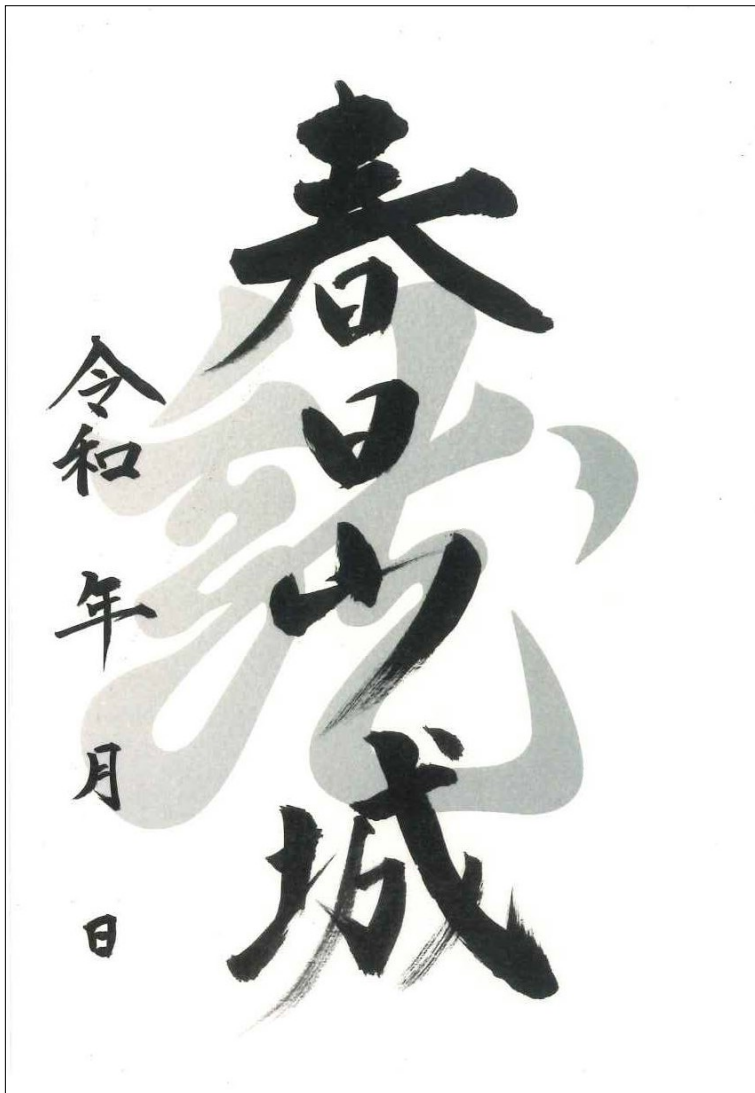 春日山城
龍
令和 年 月 日